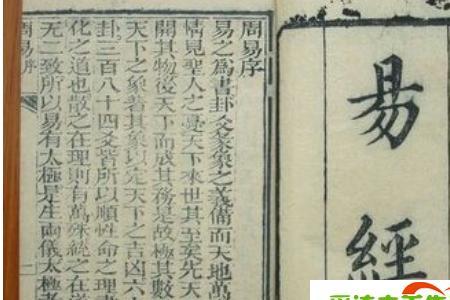 易經
周易序
易之爲書卦爻彖象之義備而天地萬
情見聖人之憂天下來世其至矣先天
開其物後天下而成其務是故極其數
天下之象著其象以定天下之吉凶六
卦三百八十四爻皆所以順性命之理
化之道也散之在理則有萬殊統之在道
无二致所以易有太極是生兩儀太極者
周易序
一